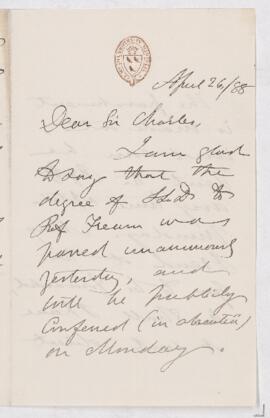 April 26/88
Dear Sir Charles,
I am glad
to say that the
degree of LL.D to
Prof Fream was
passed unanimously
yesterday, and
will be publicly
conferred (in absentiâ)
on Monday.